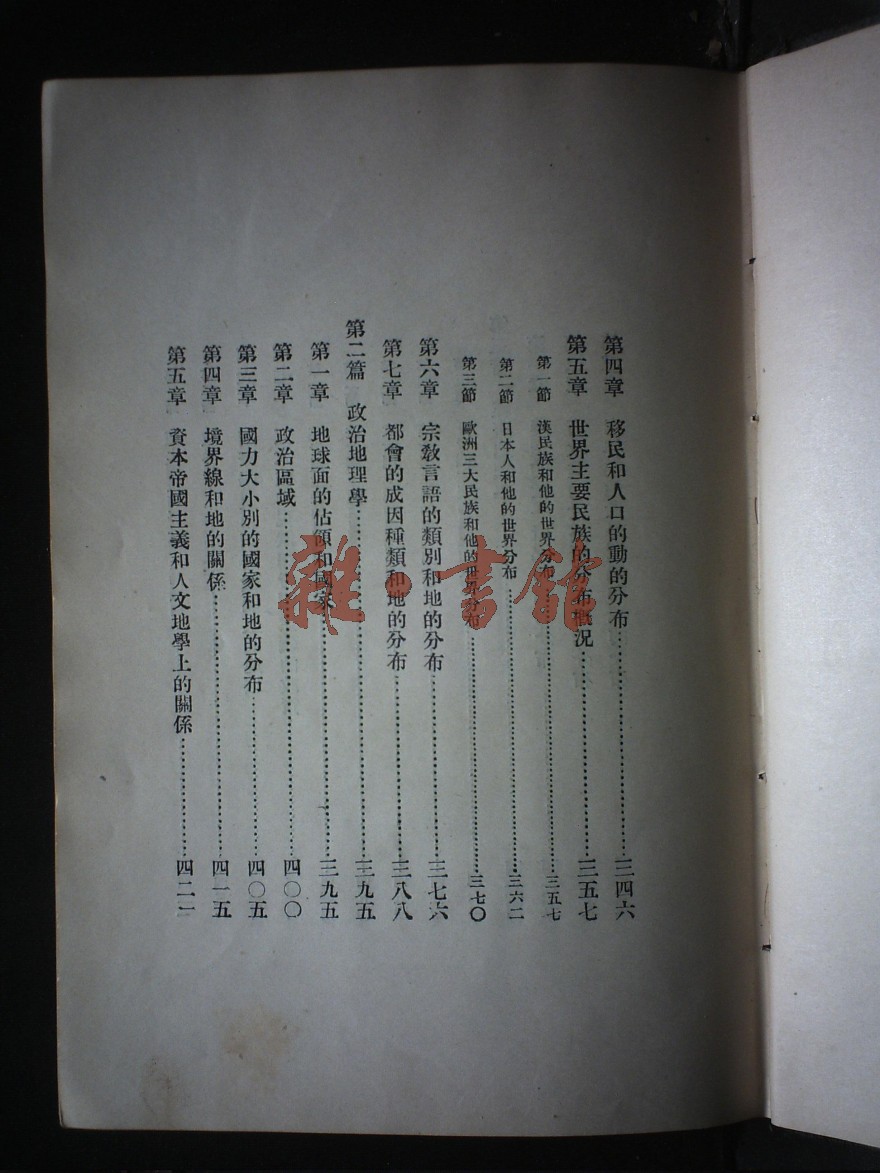 第四章 移民和人口的動的分布…………三四六
第五章 世界主要民族的分布概況…………三五七
第一節 漢民族和他的世界分布…………三五七
第二節 日本人和他的世界分布…………三六二
第三節 歐洲三大民族和他的世界分布…………三七〇
第六章 宗教言語的類別和地的分布…………三七六
第七章 都會的成因種類和地的分布…………三八八
第二篇 政治地理學…………三九五
第一章 地球面的佔領和國家…………三九五
第二章 政治區域…………四〇〇
第三章 國力大小別的國家和地的分布…………四〇五
第四章 境界線和地的關係…………四一五
第五章 資本帝國主義和人文地學上的關係…………四二一
雜·書館